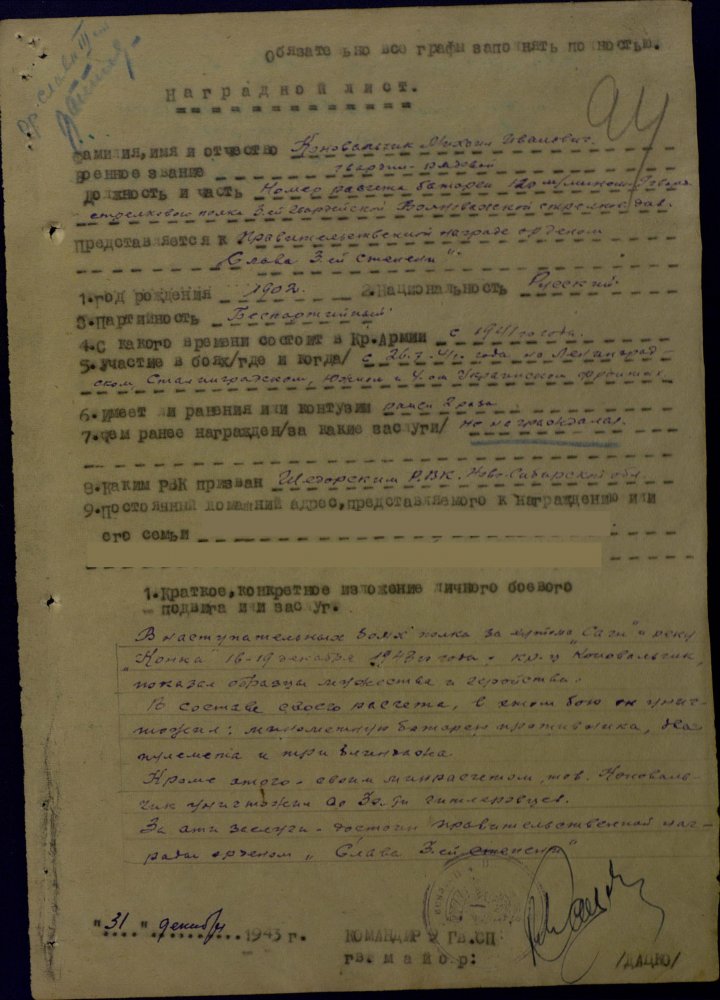 Ор. Слава III ст
Обязательно все графы заполнять полностью.
94
Наградной лист.
Фамилия, имя и отчество Коновальчик Михаил Иванович.
Военное звание гвардии-рядовой
Должность и часть Номер расчета батареи 120 м/мином. 9 гвард.
стрелковой полка 3-ей Гвардейской Волновахской стрелков. див.
Представляется к Правительственной награде орденом
"Слава 3-ей степени".
1.Год рождения 1902. 2.Национальность Русский.
3.Партийность Беспартийный
4.С какого времени состоит в Кр.Армии с 1941го года.
5.Участие в боях/где и когда/ с 26. 41. года на Ленинград-
ском, Сталинградском, Южном и 4-ом Украинском фронтах
6.Имеет ли ранения или контузии ранен 2 раза
7.Чем ранее награжден/за какие заслуги/ не награждался.
8.Каким РВК призван РВК. Ново-Сибирской обл.
9.Постоянный домашний адрес,представляемого к награждению или
его семьи
1.Краткое,конкретное изложение личного боевого
подвига или заслуг.
В наступательных боях полка за хутора "Саги" и реку
"Конка" 16-19 декабря 1943го года. кр-ц Коновальчик,
показал образцы мужества и геройства.
В составе своего расчета, в этом бою он унич-
тожил: минометную батарею противника, два
пулемета и три блиндажа
Кроме этого - своим минрасчетом, тов. Коноваль-
чик уничтожил до 30-ти гитлеровцев.
За эти заслуги - достоин правительственной наг-
рады орденом "Слава 3-ей степени"
"31" декабря 1943 г. КОМАНДИР 9 Гв.СП
гв. майор: /ДАЦКО/